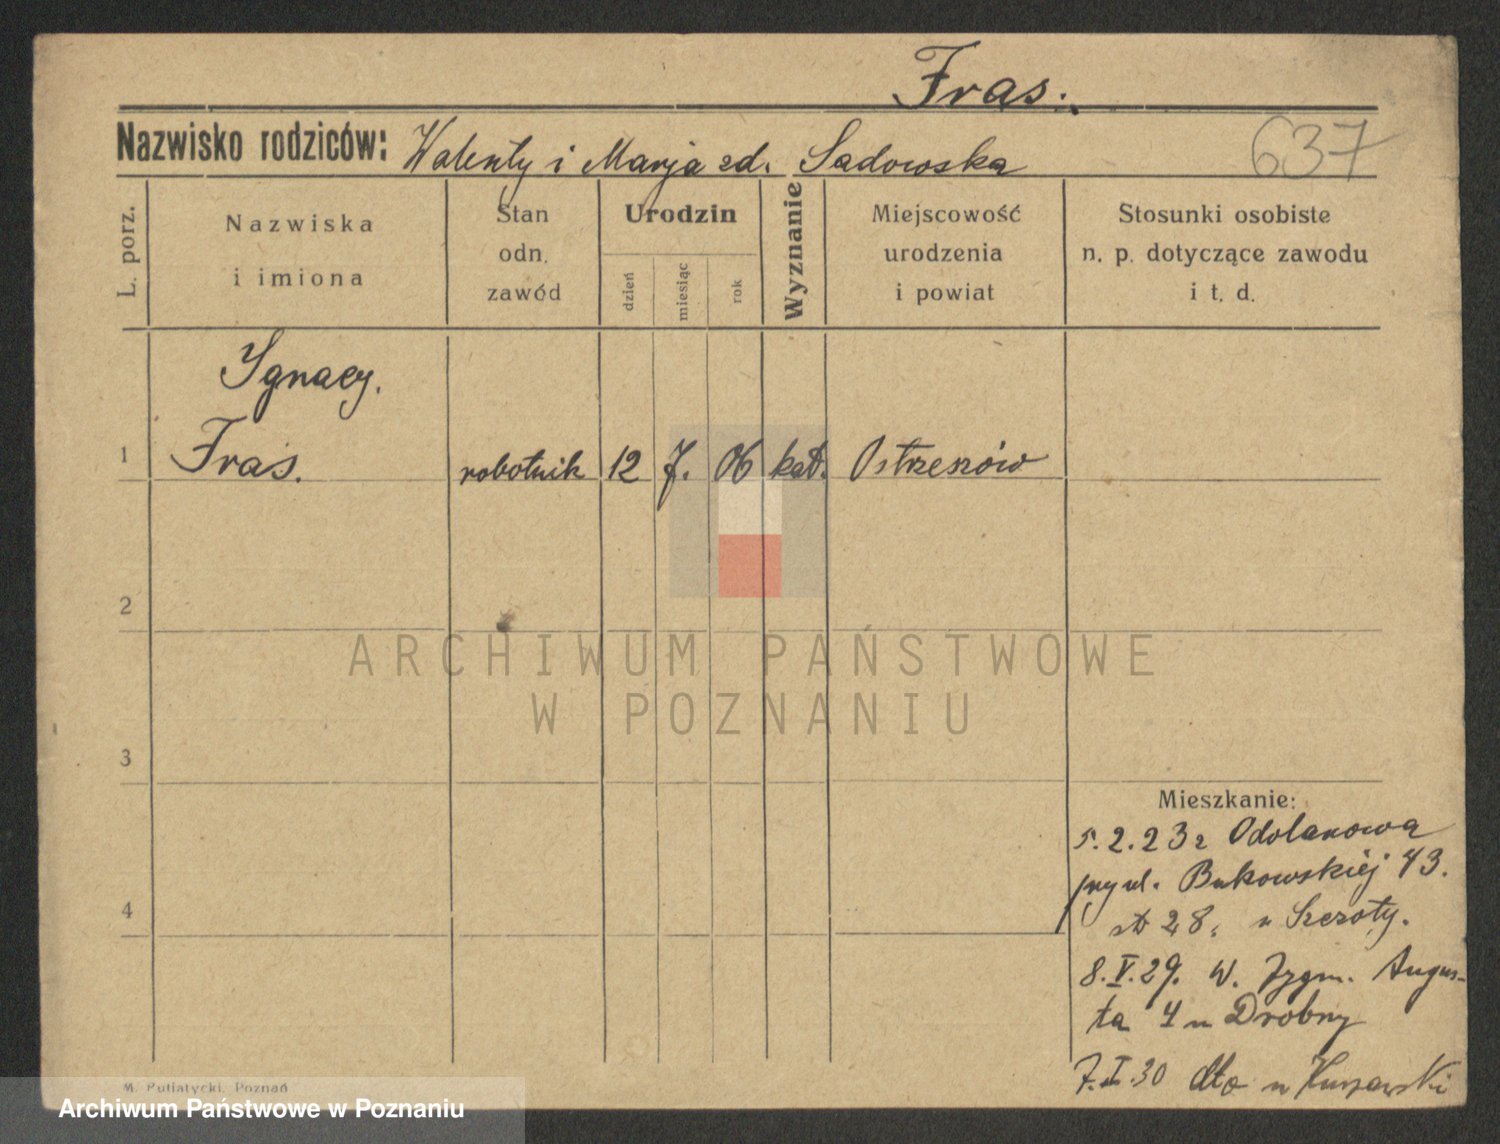 Fras.
Nazwisko rodziców: Walenty i Marja zd. Sadowska
637
L. porz.
Nazwiska
i imiona
Stan
odn.
zawód
Urodzin
dzień
miesiąc
rok
Wyznanie
Miejscowość
urodzenia
i powiat
Stosunki osobiste
n. p. dotyczące zawodu
i t. d.
Ignacy.
1 Fras. robotnik 12 7. 06 kat. Ostrzeszów
2
ARCHIWUM PAŃSTWOWE
W POZNANIU
3
Mieszkanie:
5.2.23 z Odolanowa
przy ul. Bukowskiej 43.
28. u Szczoty.
4
8.V.29. W. Zygm. Augus-
ta 4 u Drobny
7.I.30 dto u
M. Putiatycki, Poznań
Archiwum Państwowe w Poznaniu